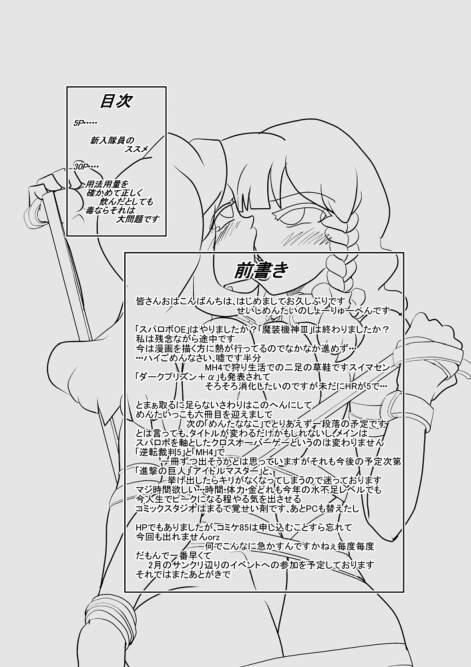 目次
5P‥‥‥
新入隊員の
ススメ
30P‥‥
用法用量を
確かめて正しく
飲んだとしても
毒ならそれは
大問題です
前書き
皆さんおはこんばんちは、はじめましてお久しぶりです
せいしめんたいのしょーりゅーへんです
「スパロボOE」はやりましたか?「魔装機神Ⅲ」は終わりましたか?
私は残念ながら途中です
今は漫画を描く方に熱が行ってるのでなかなか進めず…
…ハイごめんなさい、嘘です半分
MH4で狩り生活での二足の草鞋ですスイマセン
「ダークプリズン+α」も発表されて
そろそろ消化したいのですが未だにHRが5で…
とまぁ取るに足らないさわりはこのへんにして
めんたいっこも六冊目を迎えまして
次の「めんたななこ」でとりあえず一段落の予定です
とは言っても、タイトルが変わるだけかもしれないし、メインは
スパロボを軸としたクロスオーバーゲーというのは変わりません
「逆転裁判5」と「MH4」で
一冊ずつ出そうかとは思っていますがそれも今後の予定次第
「進撃の巨人」「アイドルマスター」と、
挙げ出したらキリがなくなってしまうので迷っております
マジ時間欲しい…時間・体力・金どれも今年の水不足レベルでも
今人生でピークになる程やる気を出させる
コミックスタジオはまるで覚せい剤です、あとPCも替えたし
HPでもありましたが、コミケ85は申し込むことすら忘れて
今回も出れませんorz
何でこんなに急かすんですかねぇ毎度毎度
だもんで一番早くて
2月のサンクリ辺りのイベントへの参加を予定しております
それではまたあとがきで